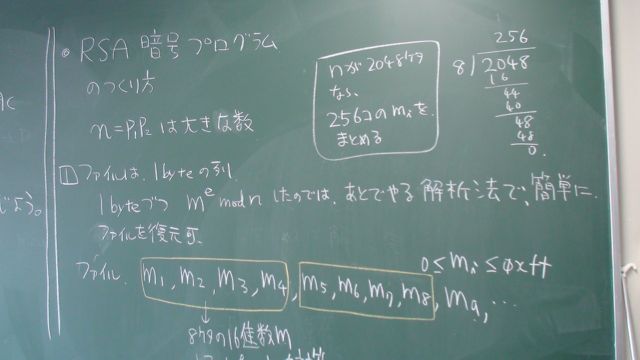 ・RSA 暗号プログラム
のつくり方
n=P₁P₂ は大きな数
nが2048ケタ
なら、
256コの mᵢを
まとめる
256
8)2048
16
44
40
48
48
0.
1 ファイルは、1byteの列.
1byteづつ mᵉ mod n したのでは、あとでやる 解析法で、簡単に
ファイルを復元可.
ファイル. m₁, m₂, m₃, m₄, m₅, m₆, m₇, m₈, m₉, …
0≤mᵢ≤0xff
↓
8ケタの16進数M
じょう。